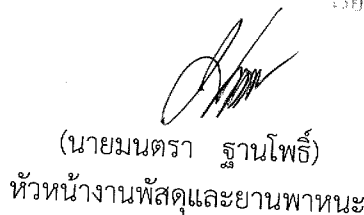 (นายมนตรา ฐานโพธิ์)
หัวหน้างานพัสดุและยานพาหนะ